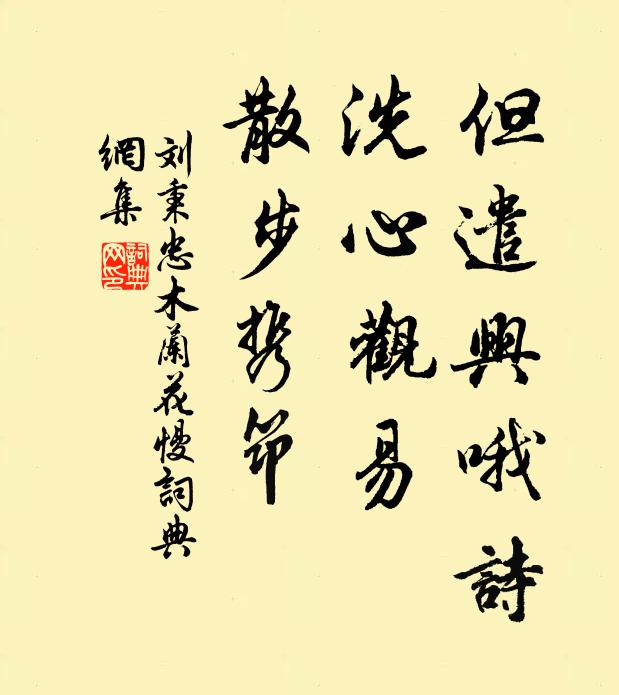 但遣興哦詩
洗心觀易
散步携筇
刘秉忠木蘭花慢詞典
網集
詞典
网印